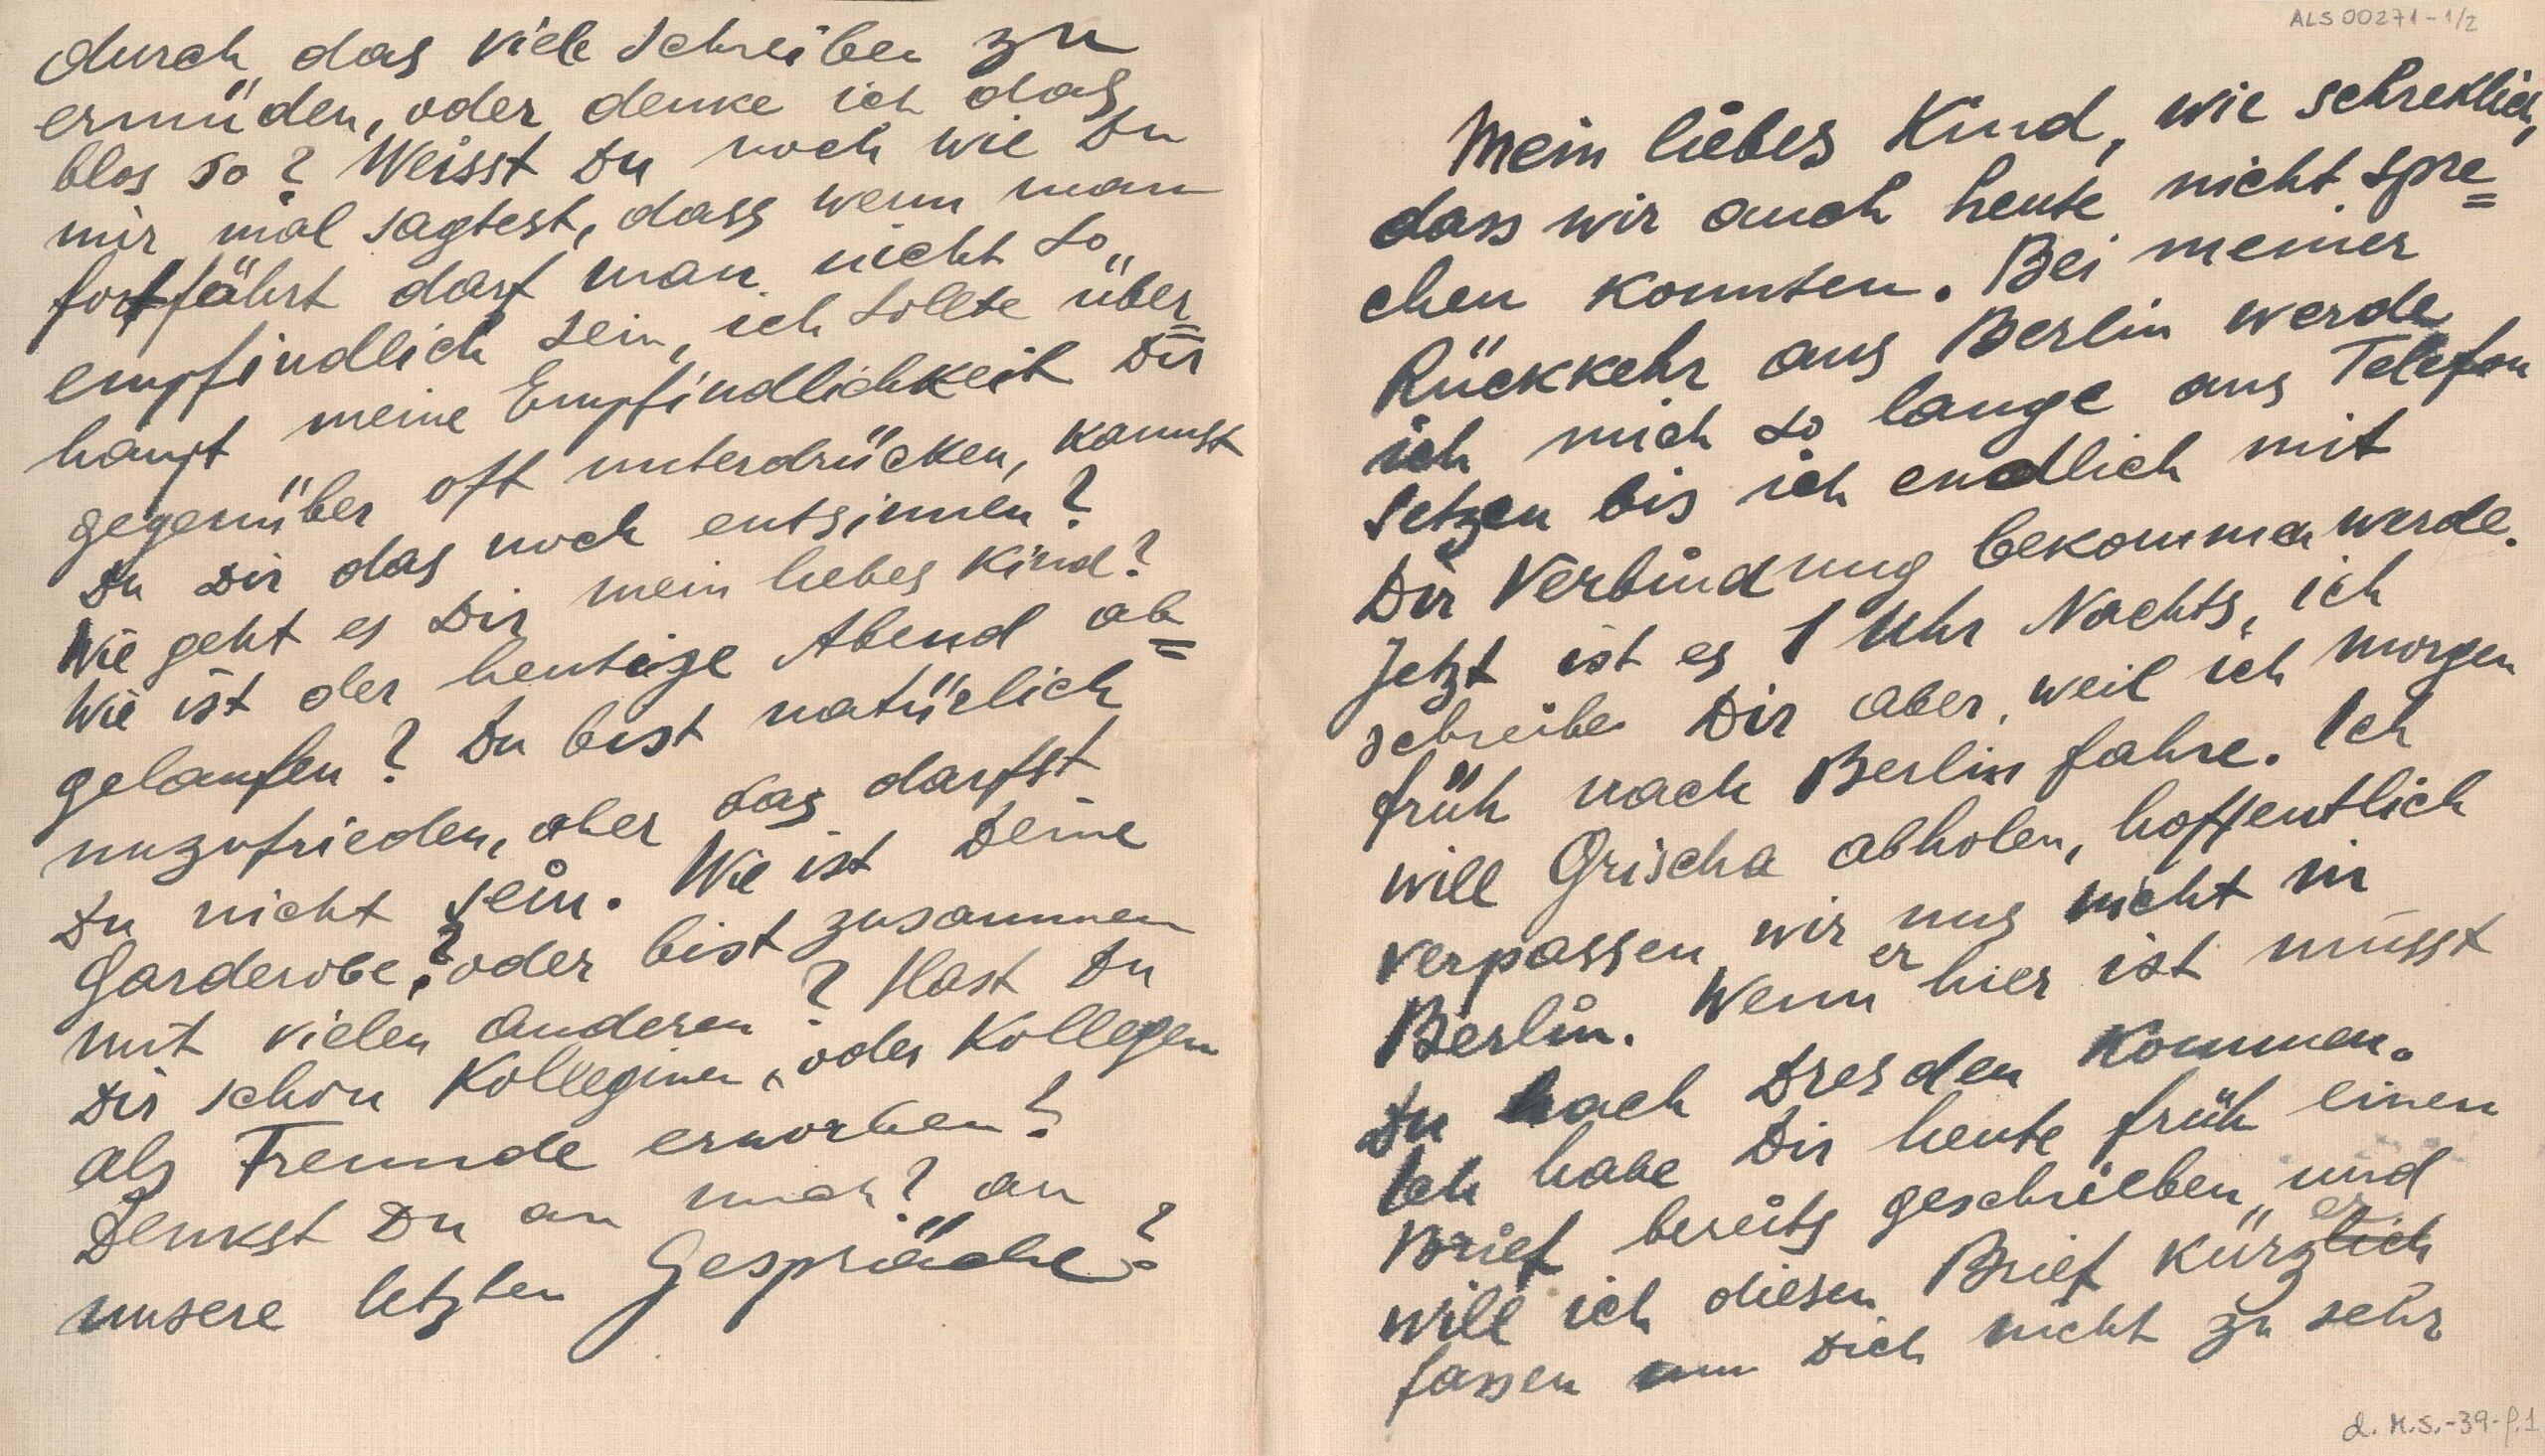 ALS 00271-1/2
Mein liebes Kind, wie schreklich,
dass wir auch heute nicht spre=
chen konnten. Bei meiner
Rückkehr aus Berlin werde
ich mich so lange ans Telefon
setzen bis ich endlich mit
Dir Verbindung bekommen werde.
Jetzt ist es 1 Uhr Nachts, ich
schreibe Dir aber, weil ich morgen
früh nach Berlin fahre. Ich
will Grischa abholen, hoffentlich
verpassen wir uns nicht in
Berlin. Wenn er hier ist musst
Du nach Dresden kommen.
Ich habe Dir heute früh einen
Brief bereits geschrieben, und
will ich diesen Brief kürzlich er
fassen um Dich nicht zu sehr
d. H.S.-39-f.1
durch das viele Schreiben zu
ermüden, oder denke ich das
blos so? Weisst Du noch wie Du
mir mal sagtest, dass wenn man
fortfährt darf man nicht so
empfindlich sein, ich sollte über=
haupt meine Empfindlichkeit Dir
gegenüber oft unterdrücken, kannst
Du Dir das noch entsinnen?
Wie geht es Dir mein liebes Kind?
Wie ist der heutige Abend ab=
gelaufen? Du bist natürlich
unzufrieden, aber das darfst
Du nicht sein. Wie ist Deine
Garderobe? oder bist zusammen
mit vielen anderen? Hast Du
Dir schon Kolleginen, oder Kollegen
als Freunde erworben?
Denkst Du an mich? an
unsere letzten Gespräche?